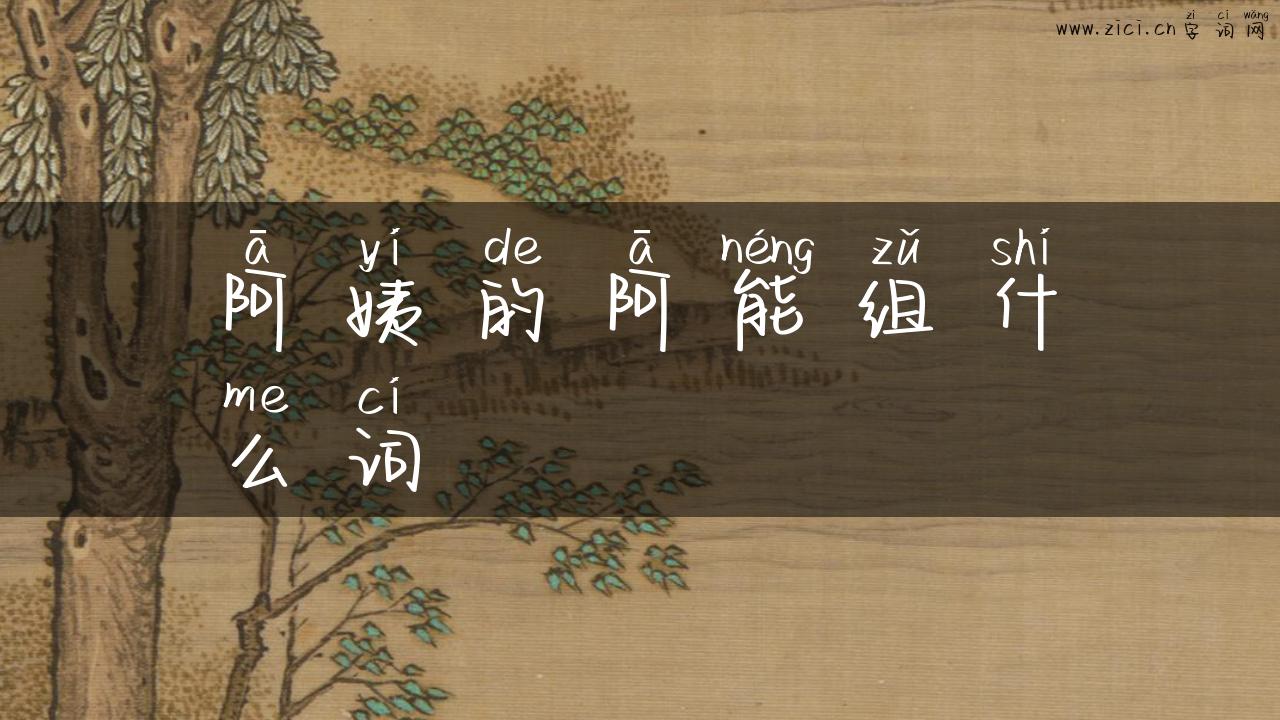 zì cí wǎng
www.zici.cn 字词网
ā yí de ā néng zǔ shí
阿姨的阿能组什
me cí
么词